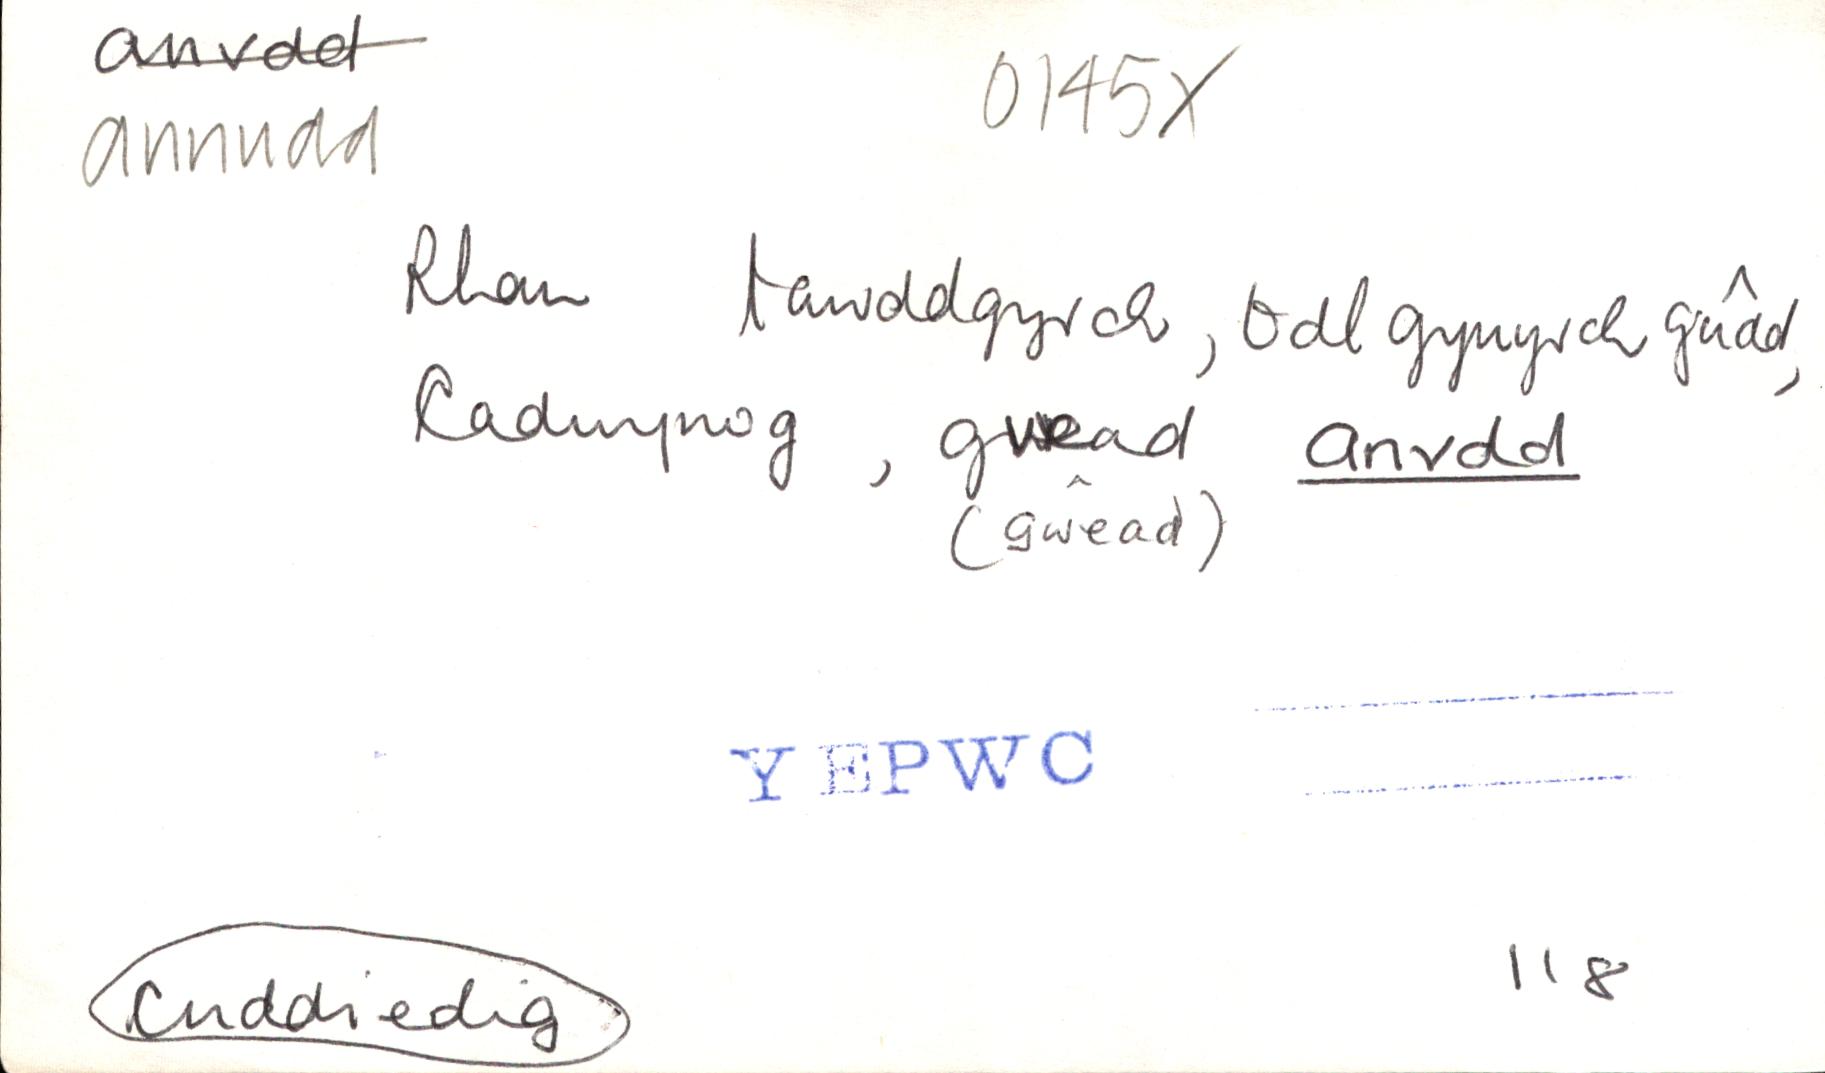 anvdd
annudd
0145X
Rhan tawddgyrch, Odl gynyrch gûad,
Cadwynog, gwead anvdd
(gŵead)
YEPWC
cuddiedig
118